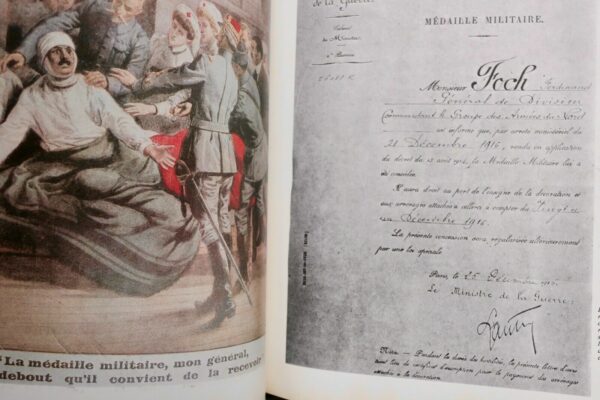 "La médaille militaire, mon général,
debout qu'il convient de la recevoir
de la Guerre.
Cabinet
du Ministre
MÉDAILLE MILITAIRE.
Monsieur Foch Ferdinand
Général de Division
Commandant le Groupe des Armées du Nord
est informé que, par arrêté ministériel du
21 Décembre 1916, rendu en application
du décret du 13 août 1914, la Médaille Militaire lui a
été conférée.
Il aura droit au port de l'insigne de la décoration et
aux arrérages attachés à celle-ci à compter du Vingt et
un Décembre 1916.
La présente concession sera régularisée ultérieurement
par une loi spéciale
Paris, le 25 Décembre
Le Ministre de la Guerre,
Nota. — Pendant la durée des hostilités, la présente lettre d'avis
tient lieu de certificat d'inscription pour le payement des arrérages
attachés à la décoration.